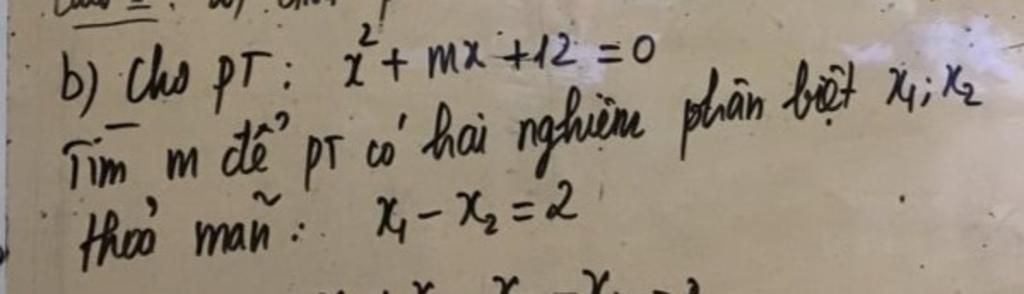 b) Cho PT: x² + mx + 12 = 0
Tìm m để PT có hai nghiệm phân biệt x₁; x₂
thoả mãn: x₁ - x₂ = 2